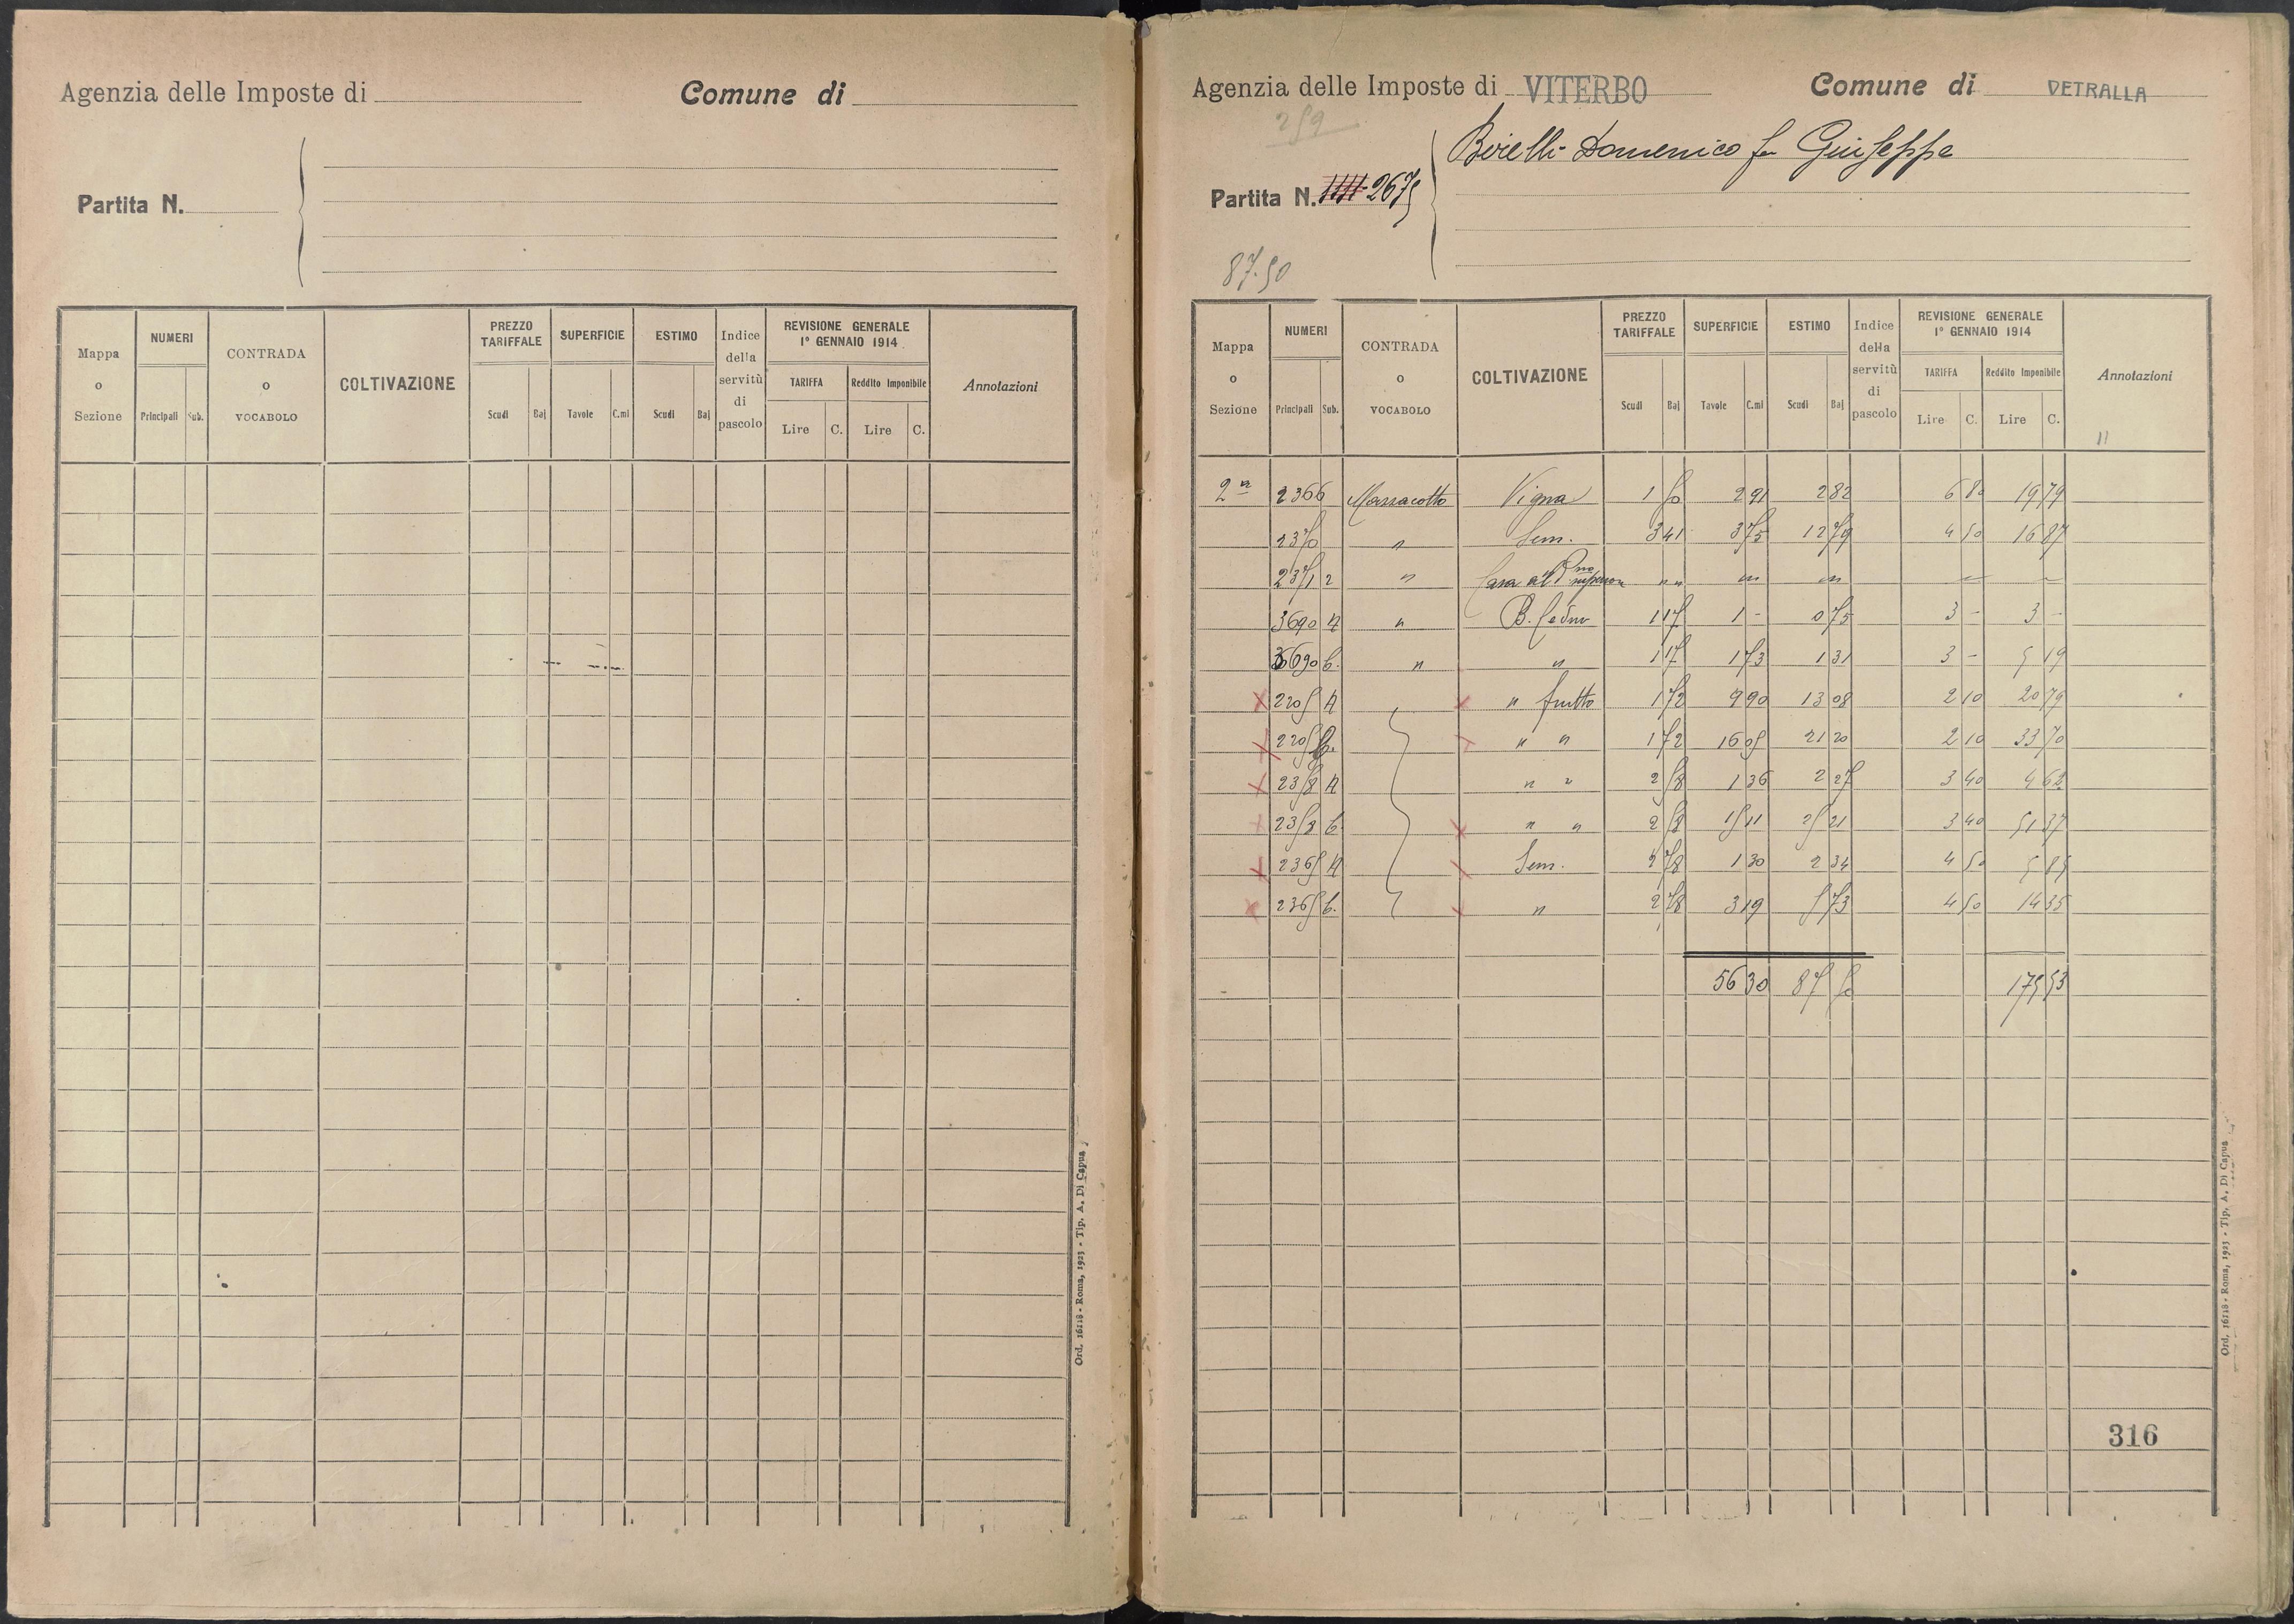 Agenzia delle Imposte di
Comune di
Partita N.
Mappa o Sezione
NUMERI
Principali Sub.
CONTRADA o VOCABOLO
COLTIVAZIONE
PREZZO TARIFFALE
Scudi Baj
SUPERFICIE
Tavole C.mi
ESTIMO
Scudi Baj
Indice della servitù di pascolo
REVISIONE GENERALE
1° GENNAIO 1914
TARIFFA Reddito Imponibile
Lire C. Lire C.
Annotazioni
Ord. 16118 - Roma, 1923 - Tip. A. Di Capua
Agenzia delle Imposte di VITERBO
Comune di VETRALLA
259
Domenico fu Giuseppe
Partita N. 2675
87.50
Mappa o Sezione
NUMERI
Principali Sub.
CONTRADA o VOCABOLO
COLTIVAZIONE
PREZZO TARIFFALE
Scudi Baj
SUPERFICIE
Tavole C.mi
ESTIMO
Scudi Baj
Indice della servitù di pascolo
REVISIONE GENERALE
1° GENNAIO 1914
TARIFFA Reddito Imponibile
Lire C. Lire C.
Annotazioni
11
2a 2366 Massacotto Vigna 1 50 2 91 2 82 6 80 19 79
2370 " Sem. 3 41 3 75 12 79 4 50 16 87
2371 2 " Casa " " " " " "
3690 A " B. Ceduo 1 17 1 - 0 75 3 - 3 -
3690 b. " " 1 17 1 73 1 31 3 - 5 19
2205 A " frutto 1 72 9 90 13 08 2 10 20 79
2205 b. " " 1 72 16 05 21 20 2 10 33 70
2358 A " " 2 58 1 36 2 27 3 40 4 62
2358 b. " " 2 58 15 11 25 21 3 40 51 37
2365 A Sem. 2 78 1 30 2 34 4 50 5 85
2365 b. " 2 78 3 19 5 73 4 50 14 35
56 30 87 50 175 53
316
Ord. 16118 - Roma, 1923 - Tip. A. Di Capua